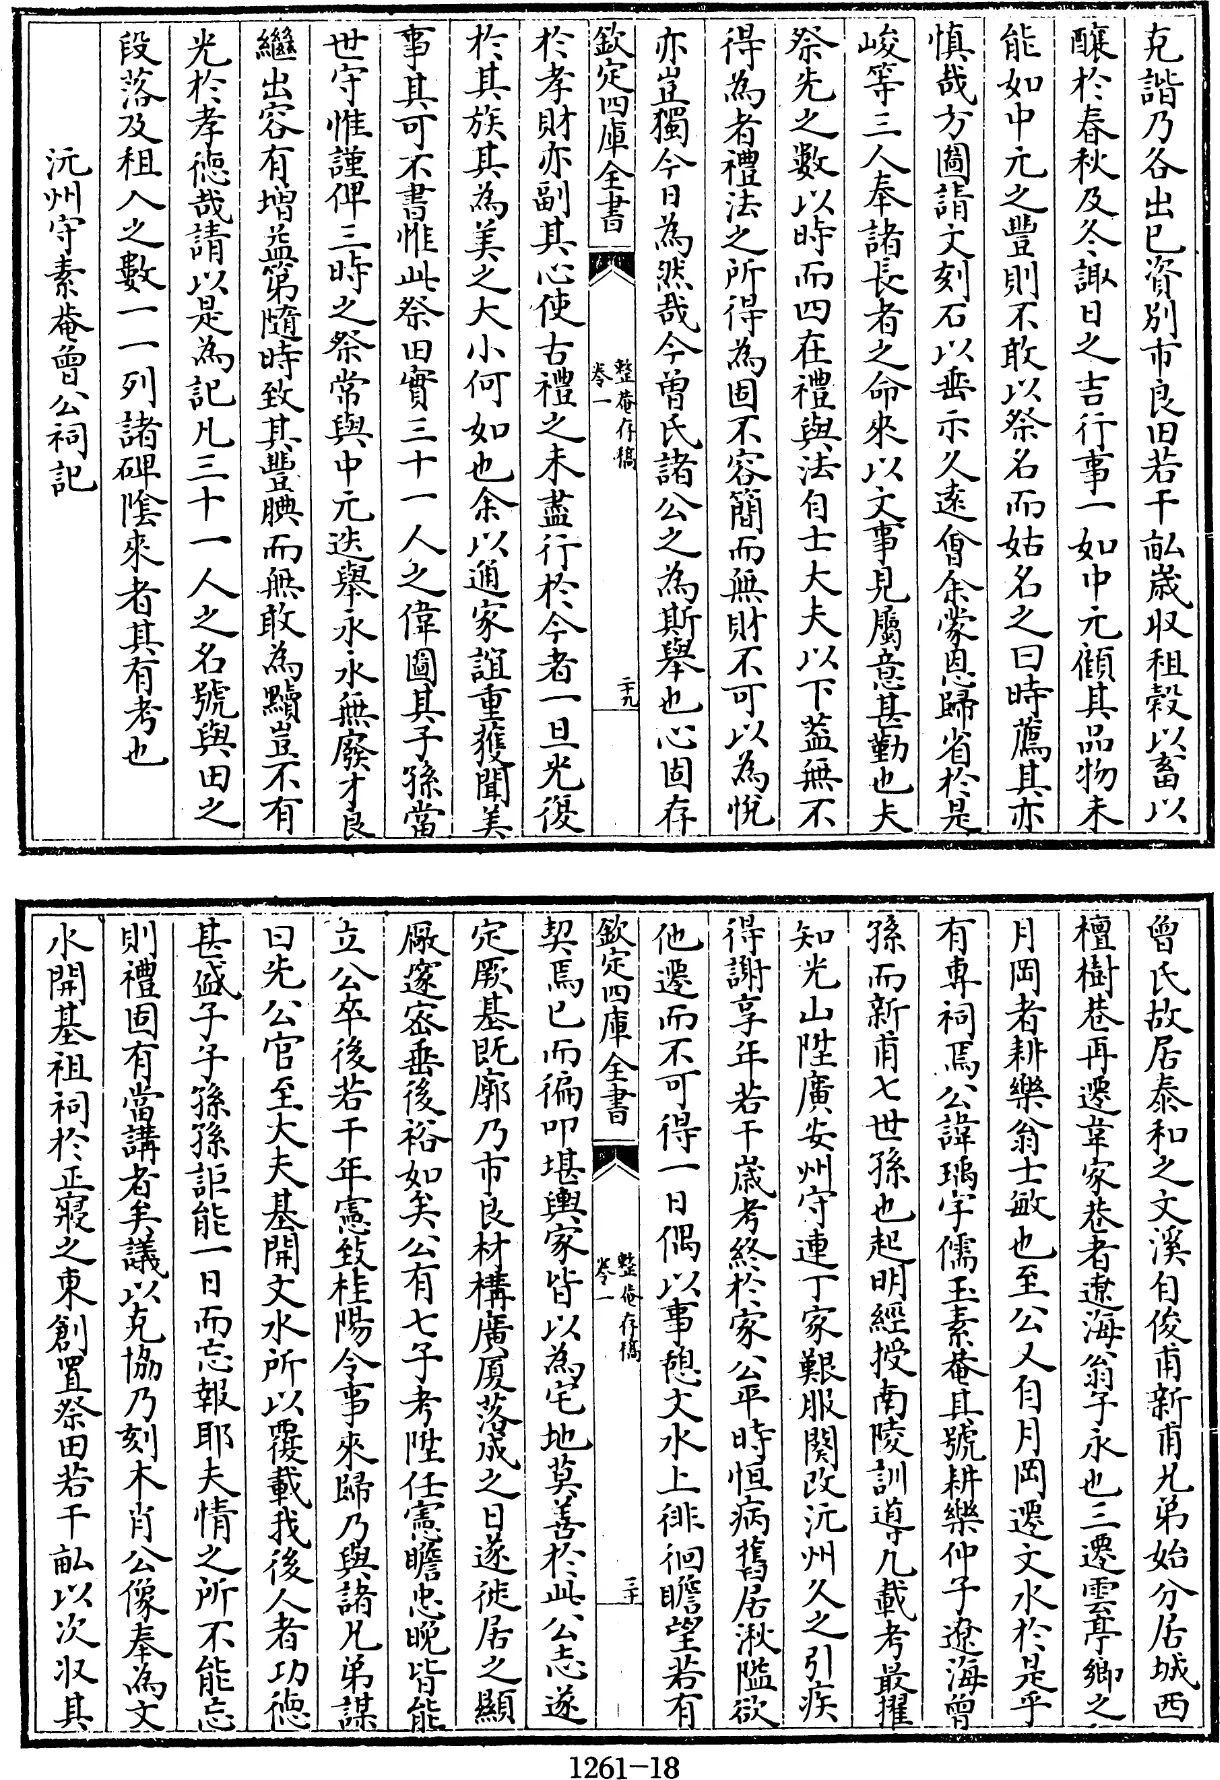 克諧乃各出已資別市良田若干畝歲収租穀以畜以
釀於春秋及冬諏日之吉行事一如中元顧其品物未
能如中元之豐則不敢以祭名而姑名之曰時薦其亦
慎哉方圖請文刻石以垂示久遠會余蒙恩歸省於是
峻等三人奉諸長者之命來以文事見屬意甚勤也夫
祭先之數以時而四在禮與法自士大夫以下葢無不
得為者禮法之所得為固不容簡而無財不可以為悅
亦豈獨今日為然哉今曾氏諸公之為斯舉也心固存
欽定四庫全書
整菴存稿
卷一
二十九
於孝財亦副其心使古禮之未盡行於今者一旦光復
於其族其為美之大小何如也余以通家誼重獲聞美
事其可不書惟此祭田實三十一人之偉圖其子孫當
世守惟謹俾三時之祭常與中元迭舉永永無廢才良
繼出容有增益第隨時致其豐腆而無敢為黷豈不有
光於孝德哉請以是為記凡三十一人之名號與田之
段落及租入之數一一列諸碑陰來者其有考也
沅州守素菴曾公祠記
曾氏故居泰和之文溪自俊甫新甫兄弟始分居城西
檀樹巷再遷韋家巷者遼海翁子永也三遷雲亭鄉之
月岡者耕樂翁士敏也至公又自月岡遷文水於是乎
有專祠焉公諱瑀字儒玉素菴其號耕樂仲子遼海曾
孫而新甫七世孫也起明經授南陵訓導九載考最擢
知光山陞廣安州守連丁家艱服闋改沅州久之引疾
得謝享年若干歲考終於家公平時恒病舊居湫隘欲
他遷而不可得一日偶以事憩文水上徘徊瞻望若有
欽定四庫全書
整菴存稿
卷一
三十
契焉已而徧叩堪輿家皆以為宅地莫善於此公志遂
定厥基既廓乃市良材構廣厦落成之日遂徙居之顯
厰邃密垂後裕如矣公有七子考陞任憲瞻忠晚皆能
立公卒後若干年憲致桂陽令事來歸乃與諸兄弟謀
曰先公官至大夫基開文水所以覆載我後人者功德
甚盛子子孫孫詎能一日而忘報耶夫情之所不能忘
則禮固有當講者矣議以克協乃刻木肖公像奉為文
水開基祖祠於正寢之東創置祭田若干畝以次収其
1261-18